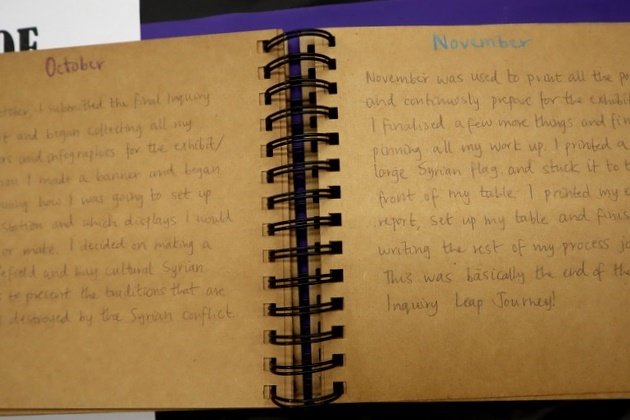 October
I submitted the final Inquiry
and began collecting all my
and infographics for the exhibit/
I made a banner and began
how I was going to set up
station and which displays I would
or make. I decided on making a
and buy cultural Syrian
to present the traditions that are
destroyed by the Syrian conflict.
November
November was used to print all the
and continuously prepare for the
I finalised a few more things and
pinning all my work up. I printed a
large Syrian flag and stuck it to
front of my table. I printed my
report, set up my table and
writing the rest of my process
This was basically the end of the
Inquiry Leap Journey!